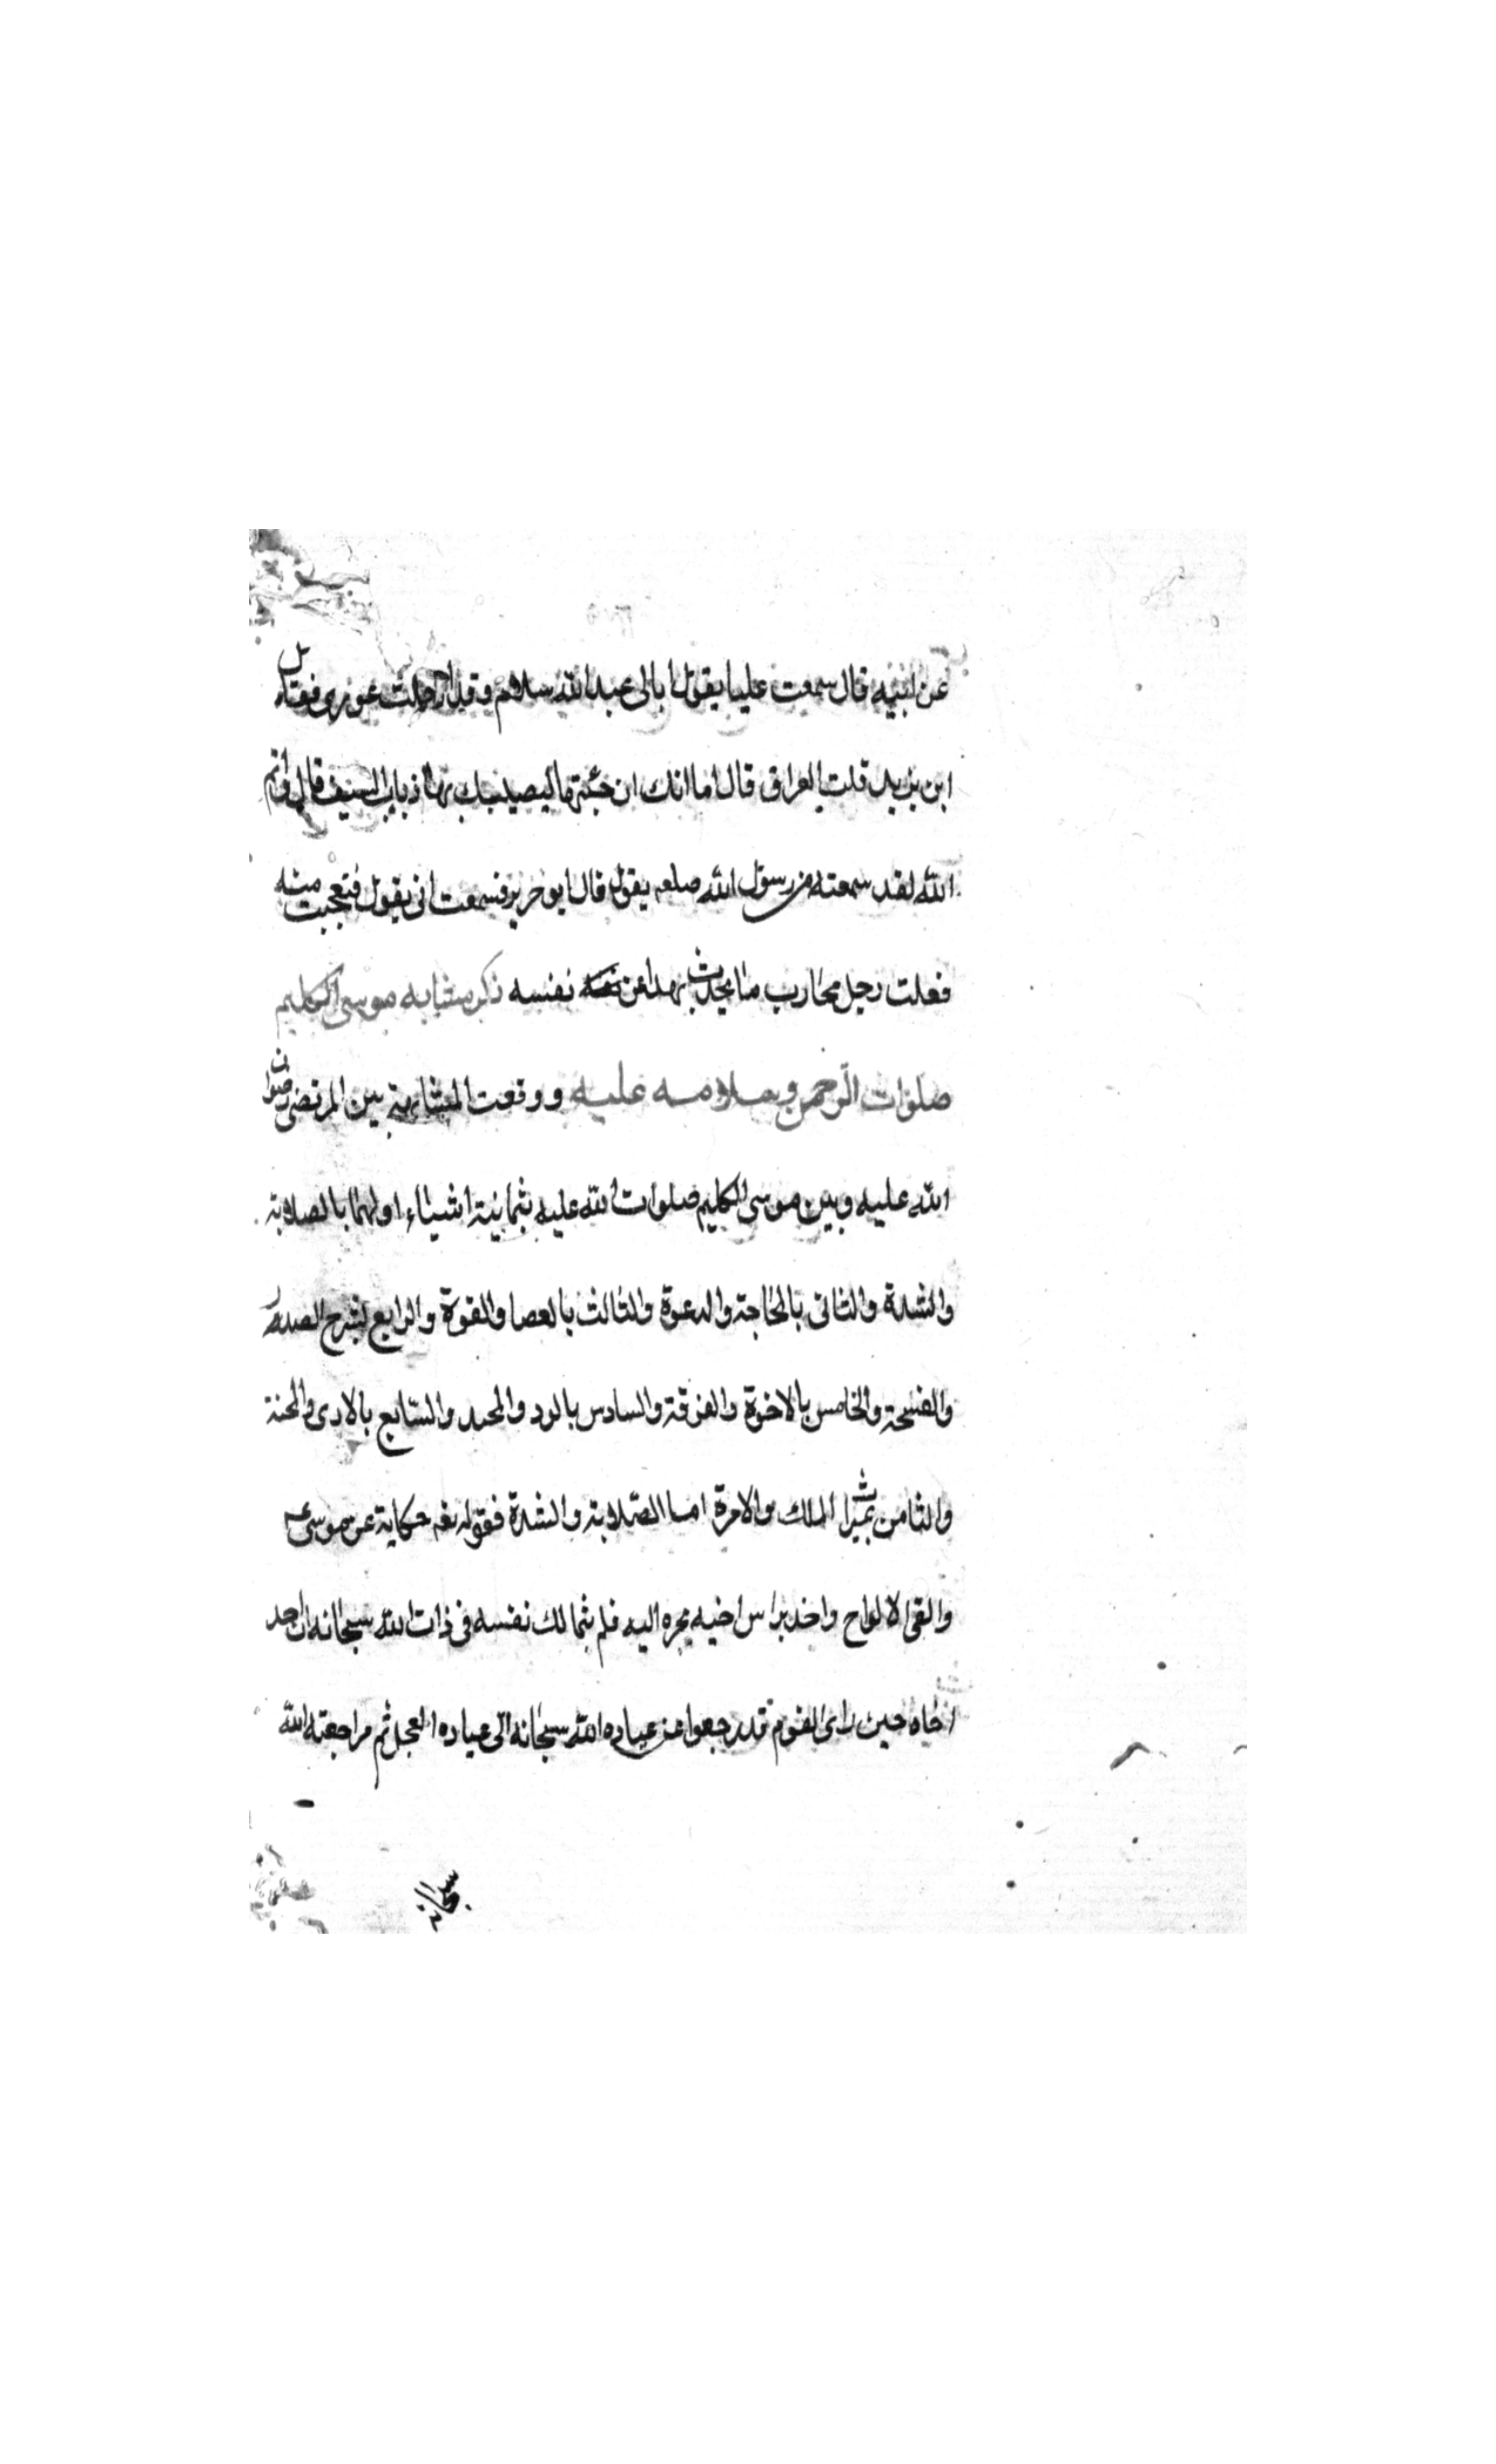 عن ابيه قال سمعت عليا يقول ابالى عبد الله سلام وقد ادخلت غورى فقال
ابن يزيد قلت العراق قال اما انك ان جئتها ليصيبك بها ذباب السيف قال وايم
الله لقد سمعته من رسول الله صلعم يقول قال ابو حرير فسمعت انى يقول فتعجبت منه
فعلت رجل محارب ما يحدث بهذا عن نفسه ذكر مشابه موسى الكليم
صلوات الرحمن وسلامه عليه ووقعت المشابهة بين المرتضى رضوان
الله عليه وبين موسى الكليم صلوات الله عليه بثمانية اشياء اولها بالصلابة
والشدة والثانى بالحاجة والدعوة والثالث بالعصا والقوة والرابع بشرح الصدر
والفسحة والخامس بالاخوة والفرقة والسادس بالود والمحبد والسابع بالاذى والمحنة
والثامن بميراث الملك والامرة اما الصلابة والشدة فقوله تعه حكاية عن موسى ع
والقى الالواح واخذ براس اخيه يجره اليه فلم يتمالك نفسه فى ذات الله سبحانه ان اخذ
اخاه حين راى القوم قد رجعوا عن عباده الله سبحانه الى عباده العجل ثم مراجعته الله